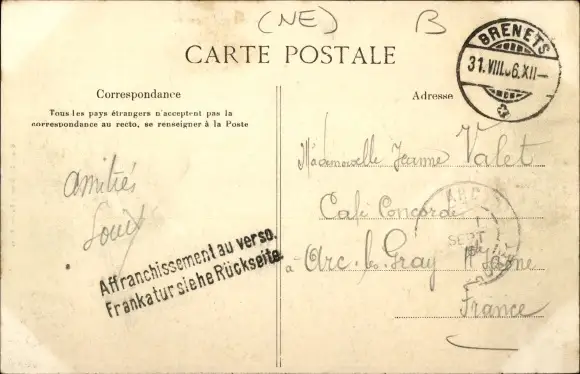 (NE) B
CARTE POSTALE
BRENETS
31.VIII.06.XII—
Correspondance
Tous les pays étrangers n'acceptent pas la
correspondance au recto, se renseigner à la Poste
Adresse
Mademoiselle Jeanne Valet
Café Concorde
à Arc-les-Gray Hte Saône
France
amitiés
Louis
Affranchissement au verso.
Frankatur siehe Rückseite.
ARC
1
SEPT